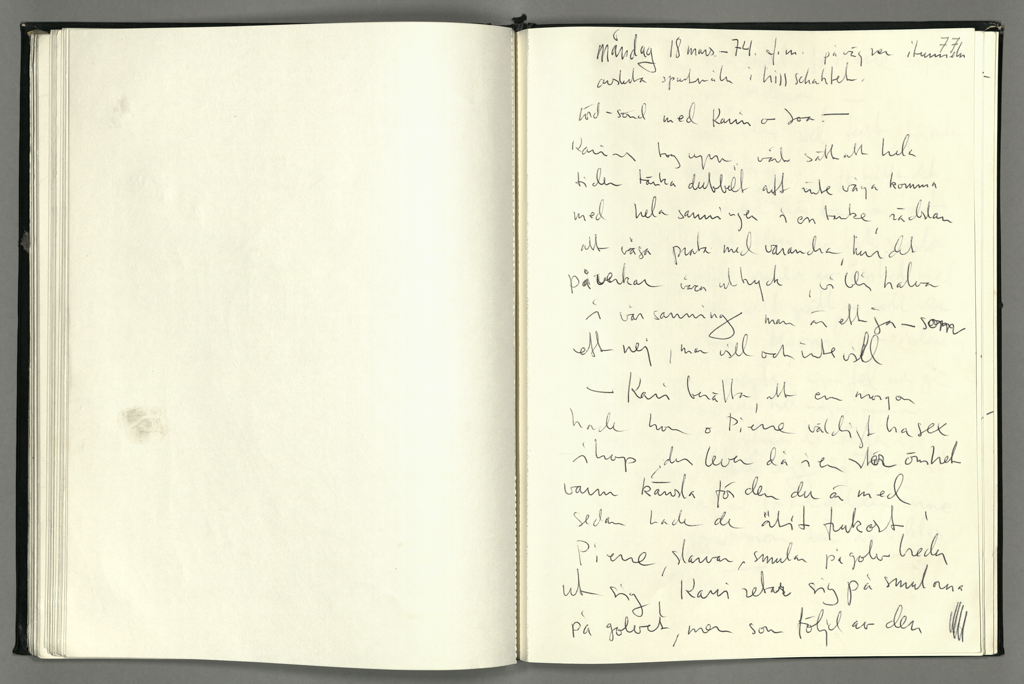 77
måndag 18 mars -74. f.m. på väg ner
avsluta sputnik i hiss schaktet.
med Karin o
Karin tog upp, vårt sätt att hela
tiden tänka dubbelt att inte våga komma
med hela sanningen i en tanke, rädslan
att våga prata med varandra, hur det
påverkar våra uttryck, vi blir halva
i vår sanning man är ett ja – som
ett nej, man vill och inte vill
— Karin berätta, att en morgon
hade hon o Pierre väldigt ha sex
ihop, du lever då i en stor ömhet
varm känsla för den du är med
sedan hade de ätit frukost
Pierre, slarvar, smular på golv breder
ut sig Karin retar sig på smulorna
på golvet, men som följd av den